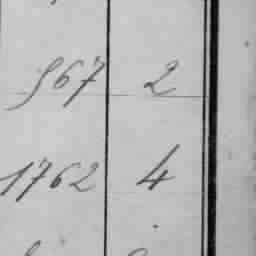 567 2
1762 4